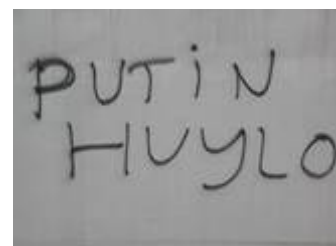 PUTiN
HUYLO